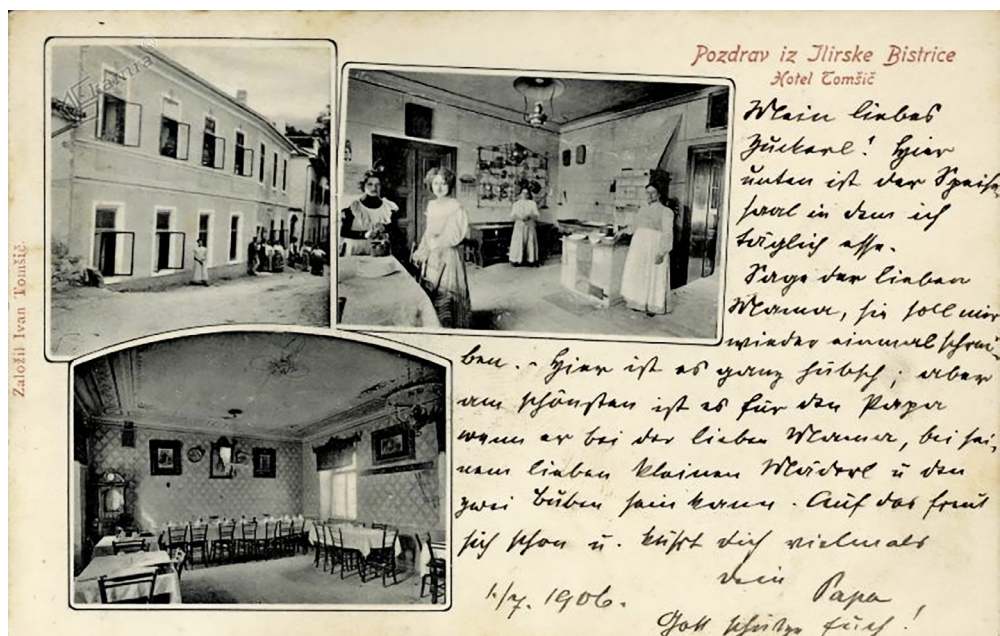 Pozdrav iz Ilirske Bistrice
Hotel Tomšič
Založil Ivan Tomšič.
Mein liebes
Zuckerl! Hier
unten ist der Speise
saal in dem ich
täglich esse.
Sage der lieben
Mama, sie soll mir
wieder einmal schrei-
ben. - Hier ist es ganz hübsch; aber
am schönsten ist es für den Papa
wenn er bei der lieben Mama, bei sei-
nem lieben kleinen Mäderl u den
zwei Buben sein kann. Auf das freut
sich schon u. küßt dich vielmals
dein Papa
1./7. 1906.
Gott schütze Euch!